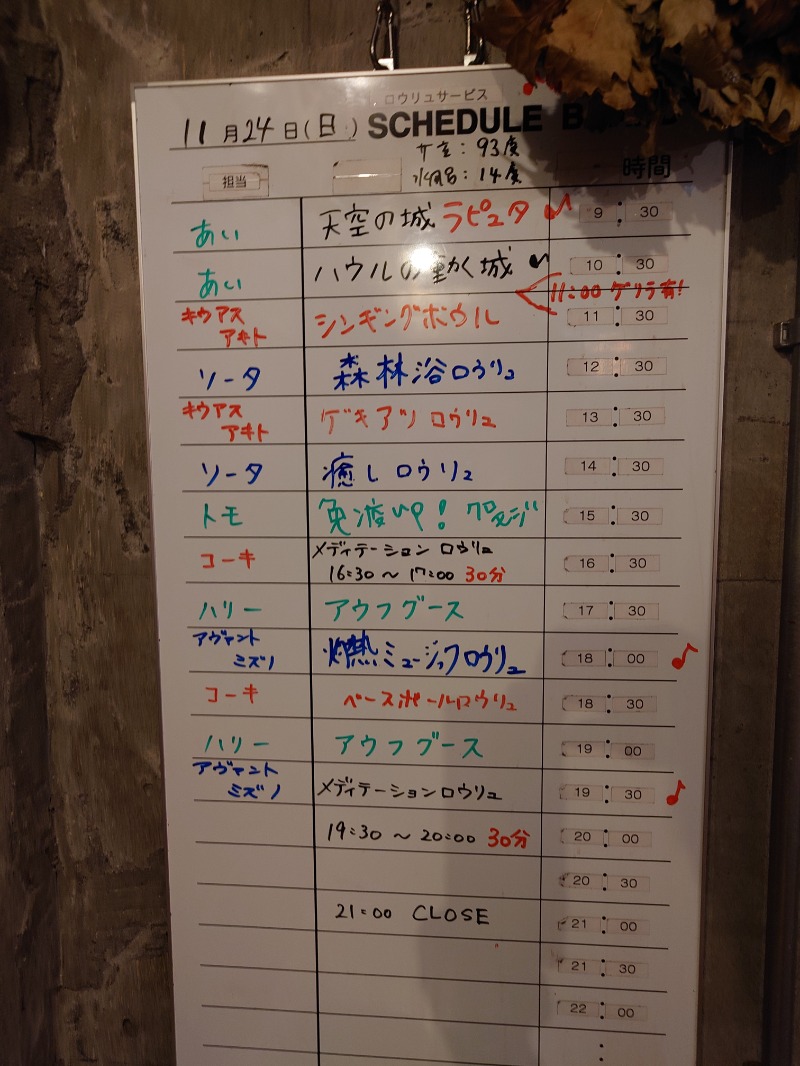 ロウリュサービス
11月24日(日) SCHEDULE
サ室:93度
水風呂:14度
担当 時間
あい 天空の城ラピュタ♪ 9:30
あい ハウルの動く城♪ 10:30
11:00 ゲリラ有!
キウアス アキト シンギングボウル 11:30
ソータ 森林浴ロウリュ 12:30
キウアス アキト ゲキアツ ロウリュ 13:30
ソータ 癒しロウリュ 14:30
トモ 免疫up! 15:30
コーキ メディテーション ロウリュ
16:30〜17:00 30分 16:30
ハリー アウフグース 17:30
アヴァント ミズノ 灼熱ミュージックロウリュ 18:00 ♪
コーキ ベースボールロウリュ 18:30
ハリー アウフグース 19:00
アヴァント ミズノ メディテーションロウリュ 19:30 ♪
19:30〜20:00 30分 20:00
20:30
21:00 CLOSE 21:00
21:30
22:00
: